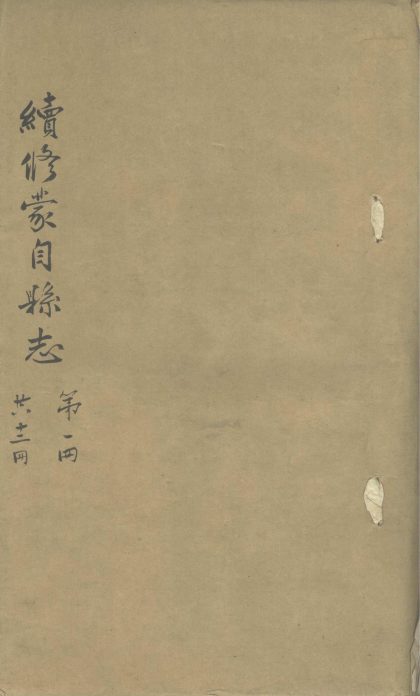 續修蒙自縣志
第一冊
共十三冊